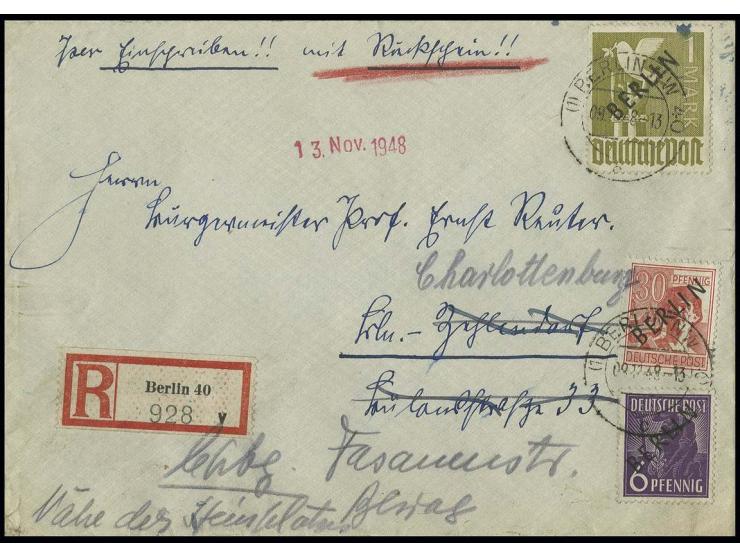 Per Einschreiben!! mit Rückschein!!
1 MARK
BERLIN
(1) BERLIN NW 40
09.11.48.-13
Deutsche Post
13. Nov. 1948
Herrn
Bürgermeister Prof. Ernst Reuter.
Charlottenburg
30 PFENNIG
BERLIN
DEUTSCHE POST
Bln.- Zehlendorf
(1) BERLIN NW 40
09.11.48.-13
R Berlin 40
928 v
33
DEUTSCHE POST
BERLIN
6 PFENNIG
Chbg. Fasanenstr.
Nähe des Steinplatzes Bewag